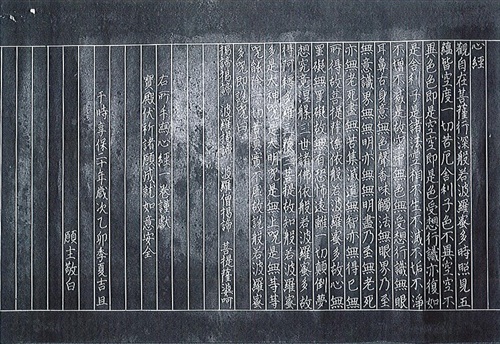 心経
觀自在菩薩行深般若波羅蜜多時照見五
蘊皆空度一切苦厄舎利子色不異空空不
異色色即是空空即是色受想行識亦復如
是舎利子是諸法空相不生不滅不垢不淨
不増不減是故空中無色無受想行識無眼
耳鼻舌身意無色聲香味觸法無眼界乃至
無意識界無無明亦無無明盡乃至無老死
亦無老死盡無苦集滅道無智亦無得已無
所得故菩提薩埵依般若波羅蜜多故心無
罣礙無罣礙故無有恐怖遠離一切顛倒夢
想究竟涅槃三世諸佛依般若波羅蜜多故
得阿耨多羅三藐三菩提故知般若波羅蜜
多是大神咒是大明咒是無上咒是無等等
咒能除一切苦真實不虚故説般若波羅蜜
多咒即説咒曰
揭諦揭諦 波羅僧揭諦 菩提薩婆訶
右所手冩心経一巻謹獻
寳殿伏祈諸願成就如意安全
于時享保二十年歳次乙卯季夏吉旦
願主敬白